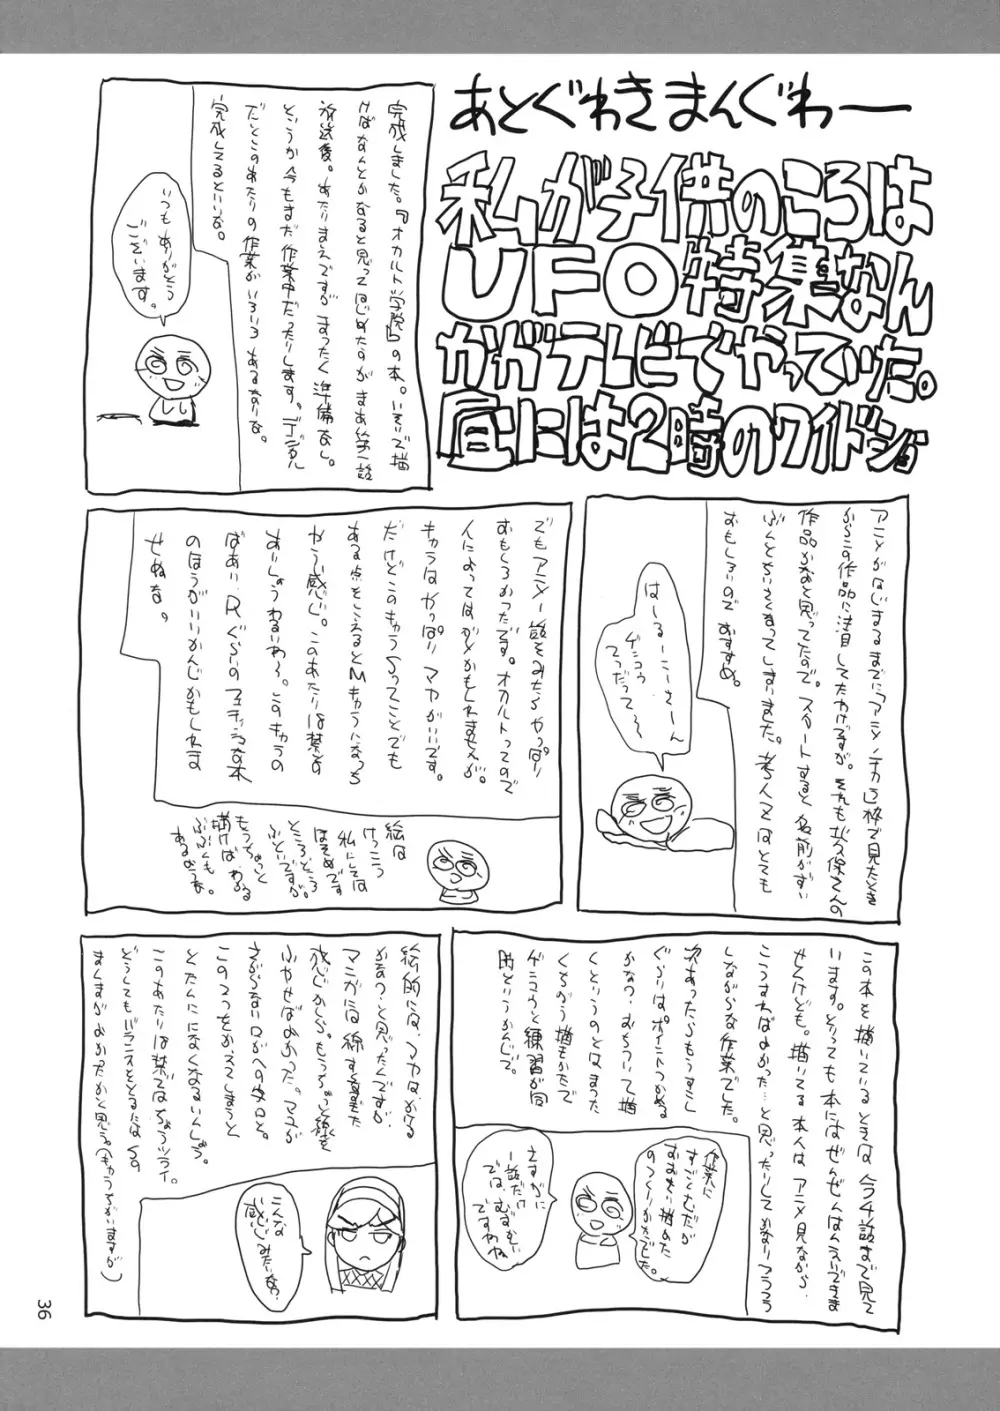 あとぐわきまんぐわー
私が子供のころは
UFO特集なん
かがテレビでやっていた。
昼には2時のワイドショ
完成しました。『オカルト学院』の本。いそいで描
けばなんとかなると思ってはじめたらがまあ第一話
放送後。あたりまえですがまったく準備なし。
というか今もまだ作業中だったりします。デジタル
だとこのあたりの作業がいろいろあるかりな。
完成してるといいな。
いつもありがとう
ございます。
アニメがはじまるまでに「アニメノチカラ」枠で見たとき
からこの作品に注目してたわけですが。それも
作品かなあと思ってたので。スタートすると名前がずい
ぶんとちいさくなってしまいました。
おもしろいのでおすすめ。
はーるーにーさーん
ゲンコウ
てつだって
〜
でもアニメ一話をみたらやっぱり
おもしろかったです。オカルトってので
人によってはダメかもしれませんが。
キャラはやっぱりマヤがいいです。
だけどこのキャラSってことでも
ある点をこえるとMキャラになっち
ゃう感じ。このあたりは禁書の
あいしょうわるいわ〜。このキャラの
ばあい。Rぐらいのフェチックな本
のほうがいいかんじかもしれま
せぬな。
絵は
けっこう
私にしては
ほそめです
ところどころ
ふといですが。
もうちょっと
描けばわかる
ぶぶんも。
あるだろうな。
この本を描いているときは今4話まで見て
います。とっても本にはぜんぜんはんえいできま
せんけども。描いてる本人はアニメ見ながら
こうすればよかった…と思ったりしてかなりフラフラ
しながらな作業でした。
次あったらもうすこし
ぐらいはポイントつかめる
かなっ。おちついて描
くというのとはまった
くちがう描きかたで
ゲンコウと練習が同
時というかんじで。
作業に
すごくむだが
おおい描めた
のつくりかたでした。
さすがに
一話だけ
では、むずかしい
ですわね
絵的には、マヤはかなる
かなっ…と思ったんですが
マンガには線が重要だ
感じかしら。もうちょっと線を
ふやせばよかった。アゴが
さがらない口がへの字口と。
この2つをかえてしまうと
とたんににてなくなるいんしょう。
このあたりは禁書ではちょうツライ。
どうしてもバランスをとるにはSの
まんまがよかったかと思う。(キャラちがいますが)
こんな
感じみたいな?
36